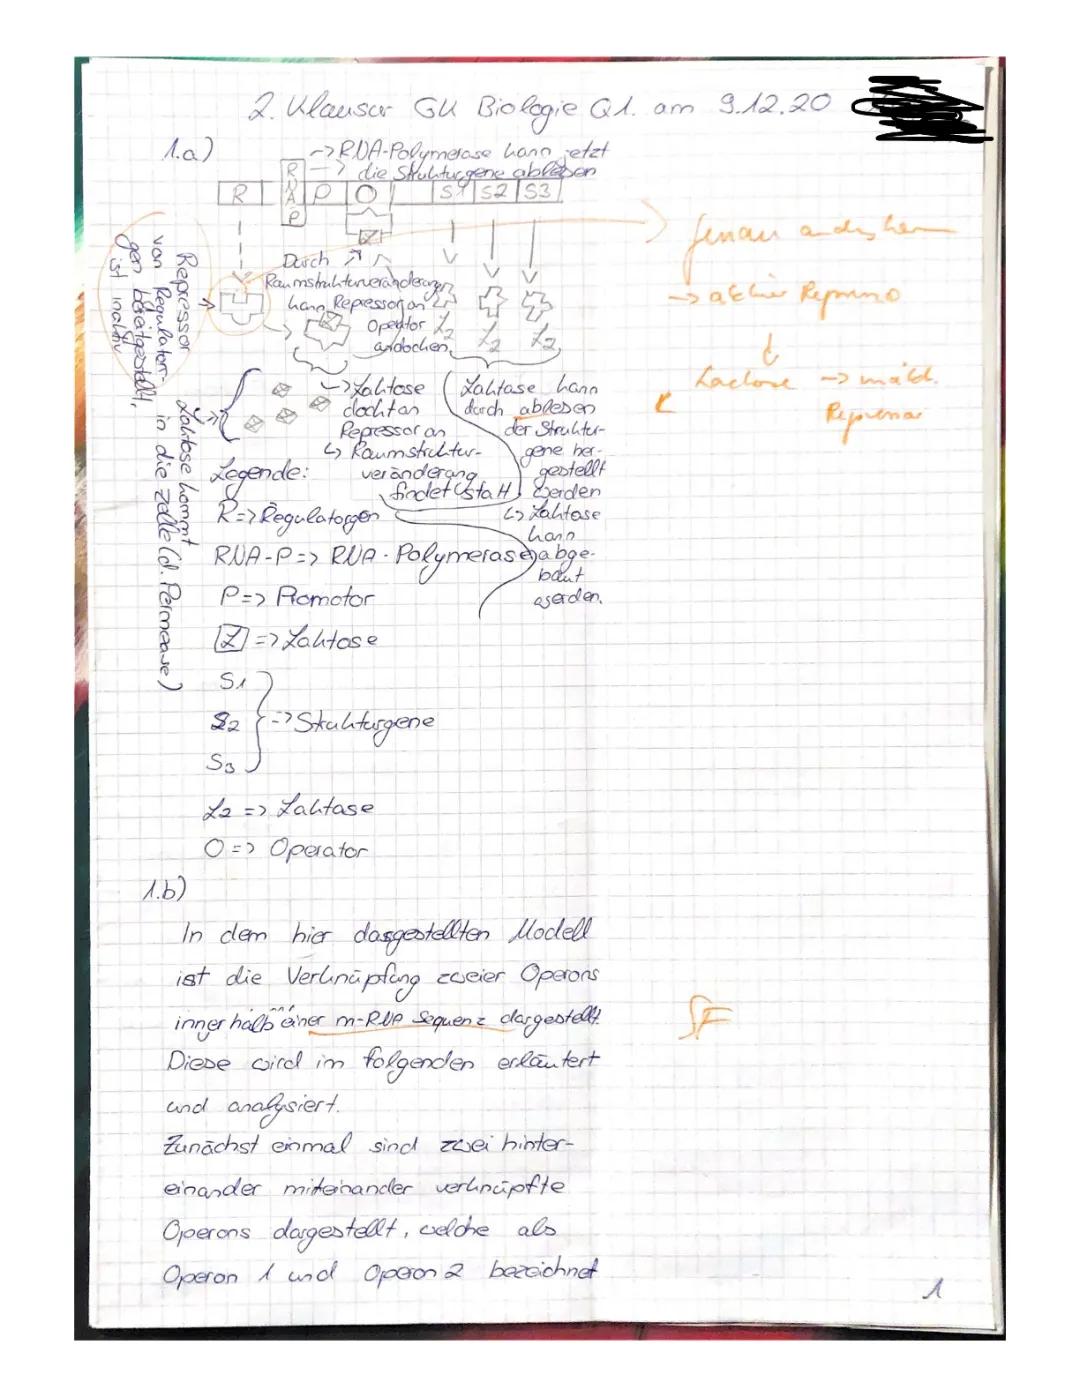 2. Klausur GK Biologie Q1. am 9.12.20
1.a)
-> RNA-Polymerase kann jetzt
-> die Strukturgene ablesen
R RNAP P O S1 S2 S3
Durch
Raumstrukturveränderung
kann Repressor an
Operator
andocken.
L2 L2 L2
Repressor
von Regulator-
gen bereitgestellt,
ist inaktiv
Laktose kommt
in die Zelle (d. Permease)
-> Laktose
dockt an
Repressor an
↳ Raumstruktur-
veränderung
findet statt
Laktase kann
durch ablesen
der Struktur-
gene her-
gestellt
werden
↳ Laktose
kann
abge-
baut
werden.
genau andersherum
-> aktiver
Lactose -> inakt.
Repressor
Legende:
R => Regulatorgen
RNA-P => RNA-Polymerase
P => Promotor
L => Laktose
S1
S2 -> Strukturgene
S3
L2 => Laktase
O => Operator
1.b)
In dem hier dargestellten Modell
ist die Verknüpfung zweier Operons
innerhalb einer m-RNA Sequenz dargestellt.
SF
Diese wird im folgenden erläutert
und analysiert.
Zunächst einmal sind zwei hinter-
einander miteinander verknüpfte
Operons dargestellt, welche als
Operon 1 und Operon 2 bezeichnet
1